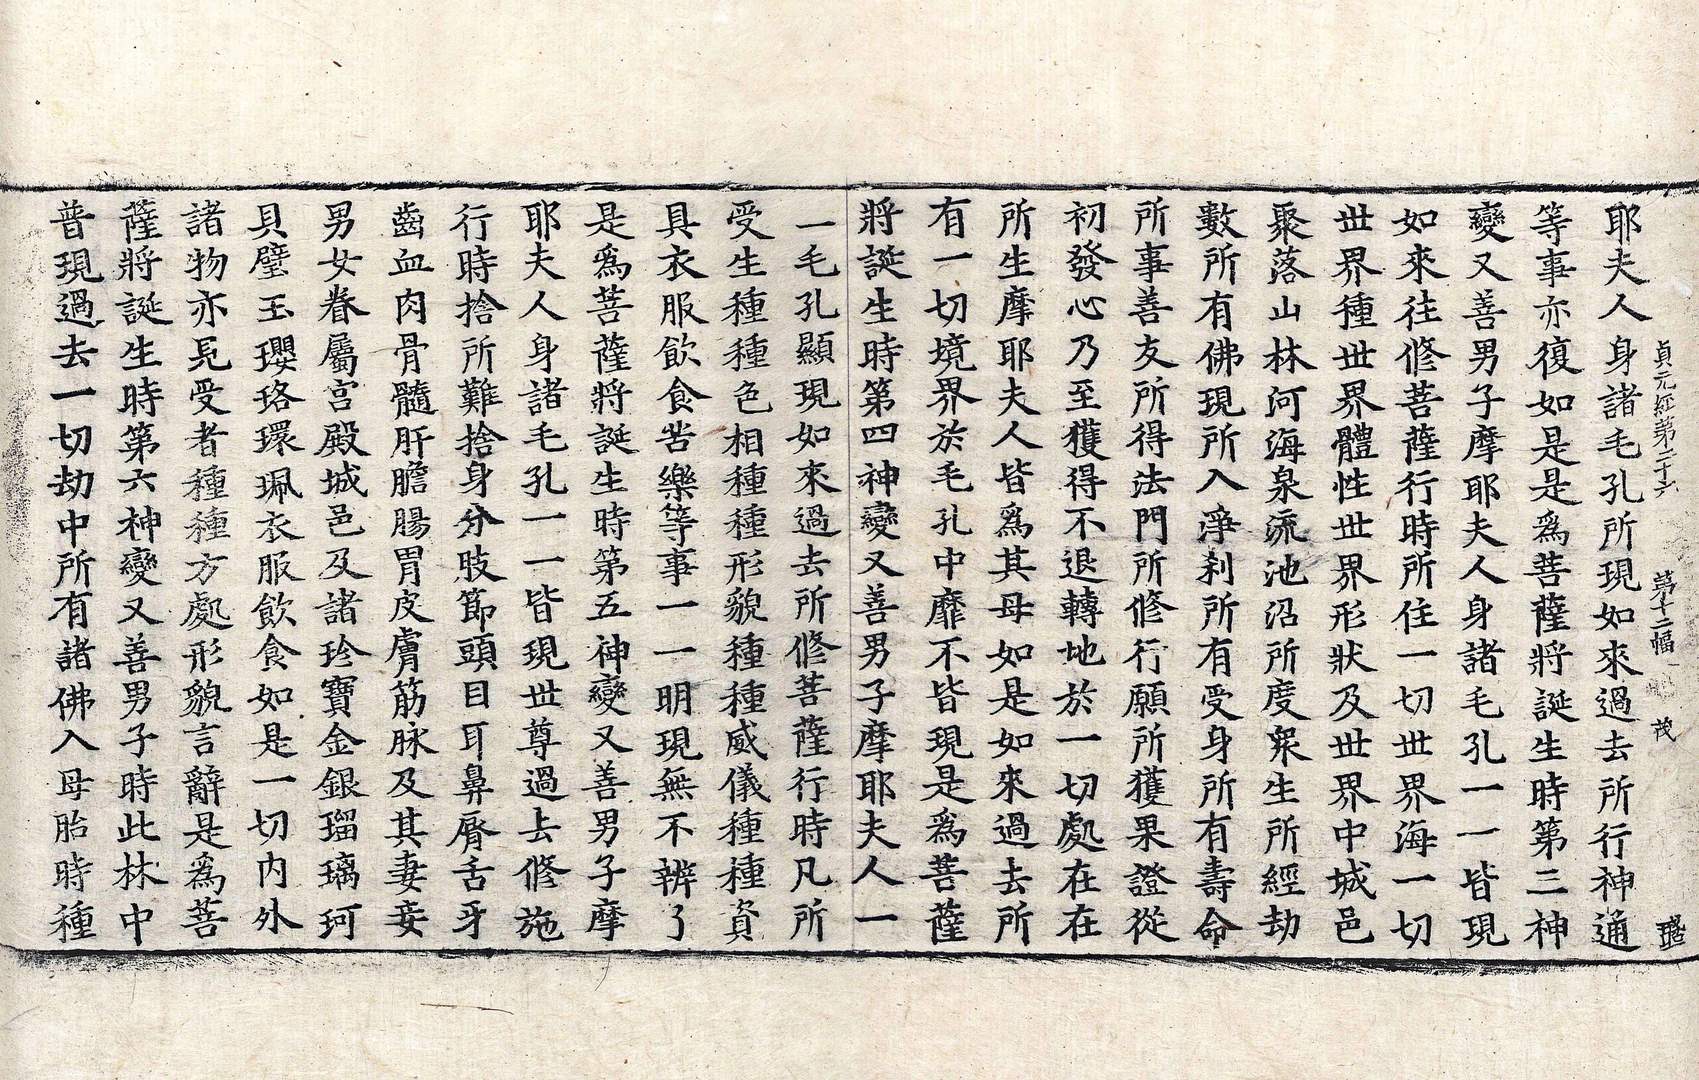 貞元經第二十六 第十二幅 茂
耶夫人身諸毛孔所現如來過去所行神通
等事亦復如是是爲菩薩將誕生時第三神
變又善男子摩耶夫人身諸毛孔一一皆現
如來往修菩薩行時所住一切世界海一切
世界種世界體性世界形狀及世界中城邑
聚落山林河海泉流池沼所度衆生所經劫
數所有佛現所入淨刹所有受身所有壽命
所事善友所得法門所修行願所獲果證從
初發心乃至獲得不退轉地於一切處在在
所生摩耶夫人皆爲其母如是如來過去所
有一切境界於毛孔中靡不皆現是爲菩薩
將誕生時第四神變又善男子摩耶夫人一
一毛孔顯現如來過去所修菩薩行時凡所
受生種種色相種種形貌種種威儀種種資
具衣服飲食苦樂等事一一明現無不辨了
是爲菩薩將誕生時第五神變又善男子摩
耶夫人身諸毛孔一一皆現世尊過去修施
行時捨所難捨身分肢節頭目耳鼻脣舌牙
齒血肉骨髓肝膽腸胃皮膚筋脉及其妻妾
男女眷屬宮殿城邑及諸珍寶金銀瑠璃珂
貝璧玉瓔珞環珮衣服飲食如是一切內外
諸物亦見受者種種方處形貌言辭是爲菩
薩將誕生時第六神變又善男子時此林中
普現過去一切劫中所有諸佛入母胎時種